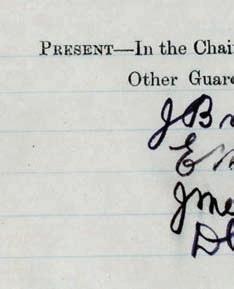 PRESENT—In the Chai
Other Guar
J B
E
J Me
D